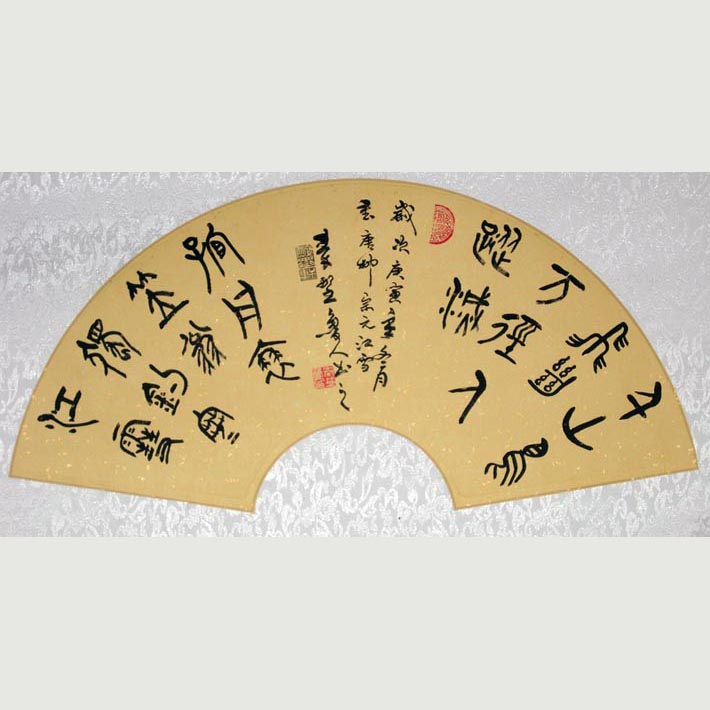 千山鳥
飛絕
万徑人
蹤滅
歲次庚寅月
書唐柳宗元江雪
魯人書之
孤舟蓑
笠翁
獨釣寒
江雪